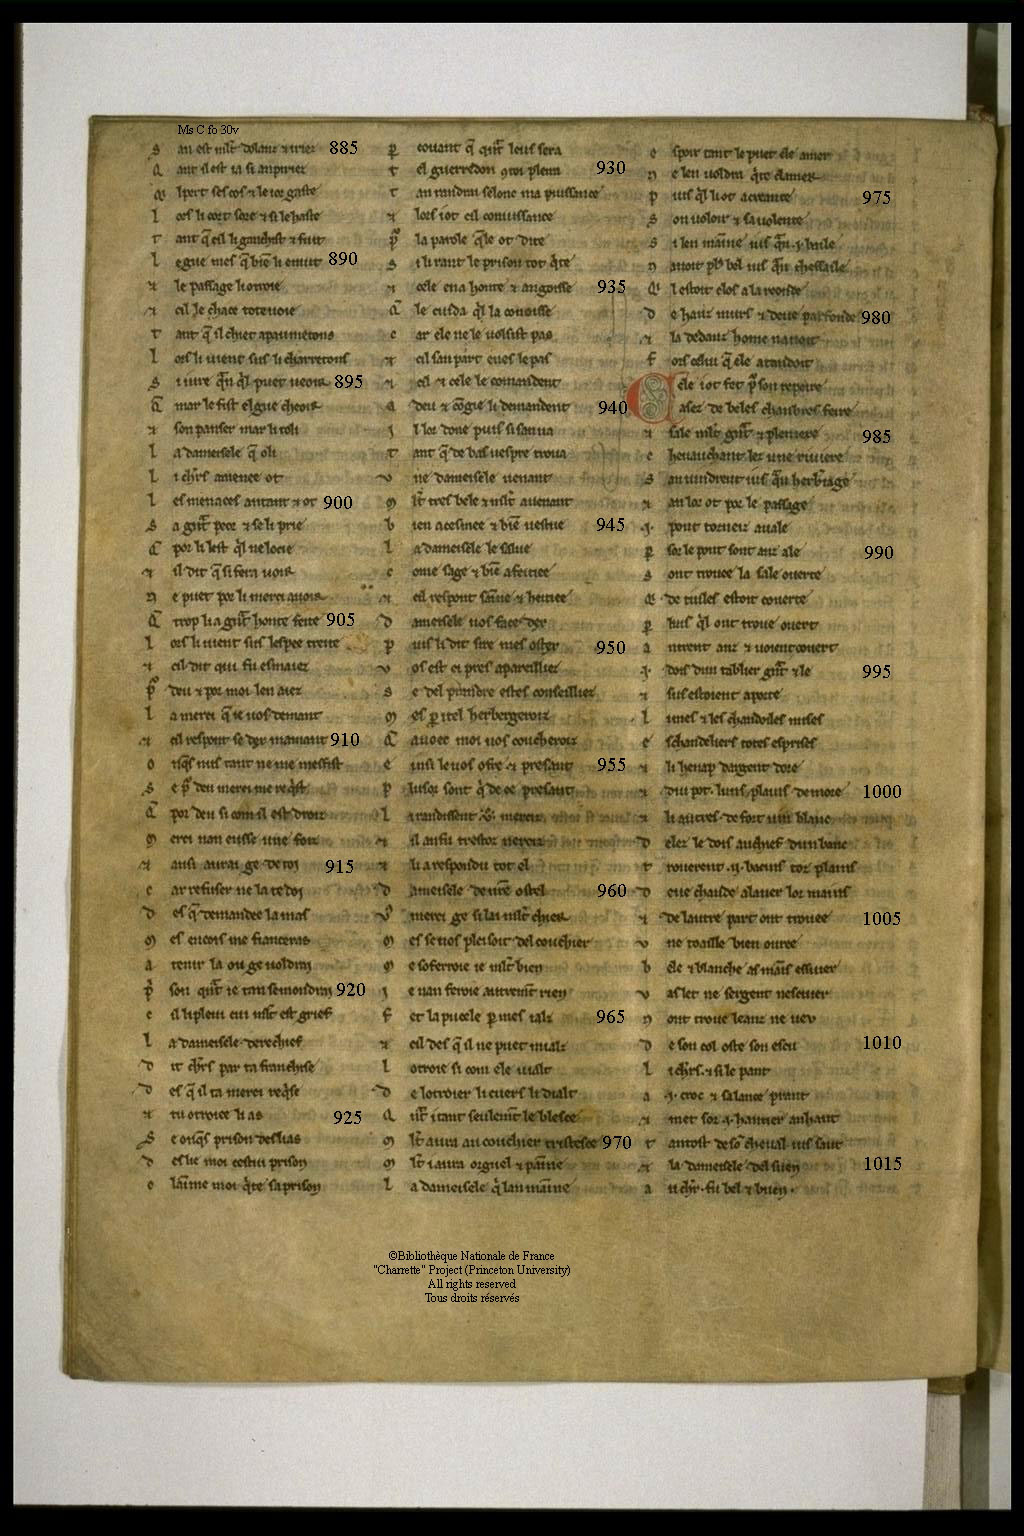 Ms C fo 30v
S an est mlt dolanz & iriez 885
Q ant il est ia si anpiriez
Q l pert ses cos & le ior gaste
L ors li cort sore & si le haste
T ant q̄ cil li ganchist & fuit
L e gue mes q̄ biē li enuit 890
& le passage li otroie
& cil le chace tote uoie
T ant q̄ il chiet a paumetons
L ors li uient sus li charretons
S i iure qu'il puet ueoir 895
Q mar le fist el gue cheoir
& son panser mar li toli
L a dameisele q̄ o li
L i chrs amenee ot
L es menaces antant & ot 900
S a grant peor & se li prie
Q por li lest ql ne locie
& il dit q̄ si fera uoir
N e puet por li merci auoir
Q trop li a grant honte feite 905
L ors li uient sus lespee treite
& cil dit qui fu esmaiez
P deu & por moi len aiez
L a merci q̄ ie uos demant
& cil respont se dex mamant 910
O nqs nus tant ne me messist
S e p deu merci me reqist
Q por deu si com il est droiz
M erci nan eusse une foiz
& ausi aurai ge de toi 915
C ar refuser ne la te doi
D es q̄ demandee la mas
M es encois me fianceras
A tenir la ou ge uoldrai
P rison quant ie tan semondrai 920
C il li pleui cui mlt est grief
L a dameisele derechief
D it chrs par ta franchise
D es q̄ il ta merci reqise
& tu otroiee li as 925
S e onqs prison deslias
D eslie moi cestui prison
C laimme moi qite sa prison
P couant q̄ quant leus sera
T el guerredon con plera 930
T an randrai selonc ma puissance
& lors iot cil conuissance
P la parole qele ot dite
S i li rant le prison tot qite
& cele en a honte & angoisse 935
Q le cuida ql la conoisse
C ar ele ne le uolsist pas
& cil san part eneslepas
& cil & cele le comandent
A deu & congie li demandent 940
I l lor done puis si san ua
T ant q̄ de bas uespre troua
V ne dameisele uenant
M lt tres bele & mlt auenant
B ien acesmee & biē uestue 945
L a dameisele le salue
C ome sage & biē afeitiee
& cil respont saine & heitiee
D ameisele uos face dex
P uis li dit sire mes ostex 950
V os est ci pres apareilliez
S e del prandre estes conseilliez
M es p itel herbergeroiz
Q auoec moi uos coucheroiz
E insi le uos ofre & presant 955
P lusor sont q de ce presant
L i randissent .vc. merciz
& il an fu trestoz nerciz
& li a respondu tot el
D ameisele de uostre ostel 960
V os merci ge si lai mlt chier
M es se uos pleisoit del couchier
M e soferroie ie mlt bien
I e nan feroie autremt rien
F et la pucele p mes ialz 965
& cil des q̄ il ne puet mialz
L otroie si com ele uialt
D e lotroier li cuers li dialt
Q ant itant seulemt le blesce
M lt aura au couchier tristesce 970
M lt i aura orguel & paine
L a dameisele q lan maine
E spoir tant le puet ele amer
N e len uoldra qite clamer
P uis ql li ot acreante 975
S on uoloir & sa uolente
S i len maine iusqan .i. baile
N auoit pl bel iusqan thessaile
Q l estoit clos a la reonde
D e hauz murs & deue parfonde 980
& la dedanz home nauoit
F ors celui q̄ ele atandoit
C ele iot fet p son repeire
A sez de beles chanbres feire
& sale mlt grant & pleniere 985
C heuauchant lez une riuiere
S an uindrent iusqau herbergage
& an lor ot por le passage
.I. pont torneiz auale
P sor le pont sont anz ale 990
S ont trouee la sale ouerte
Q de tiules estoit couerte
P luis ql ont troue ouert
A ntrent anz & uoient couert
.I. dois dun tablier grant & le 995
& sus estoient aporte
L i mes & les chandoiles mises
E schandeliers totes esprises
& li henap dargent dore
& dui pot. luns plains de more 1000
& li autres de fort uin blanc
D elez le dois au chief dun banc
T rouerent .ij. bacins toz plains
D eue chaude a lauer lor mains
& de lautre part ont trouee 1005
V ne toaille bien ouuree
B ele & blanche as mains essuier
V aslet ne sergent nescuier
N ont troue leanz ne ueu
D e son col oste son escu 1010
L i chrs. & si le pant
A .i. croc & sa lance prant
& met sor .i. hantier an haut
T antost de son cheual ius saut
& la dameisele del suen 1015
A u chr. fu bel & buen.
©Bibliothèque Nationale de France
"Charrette" Project (Princeton University)
All rights reserved
Tous droits réservés